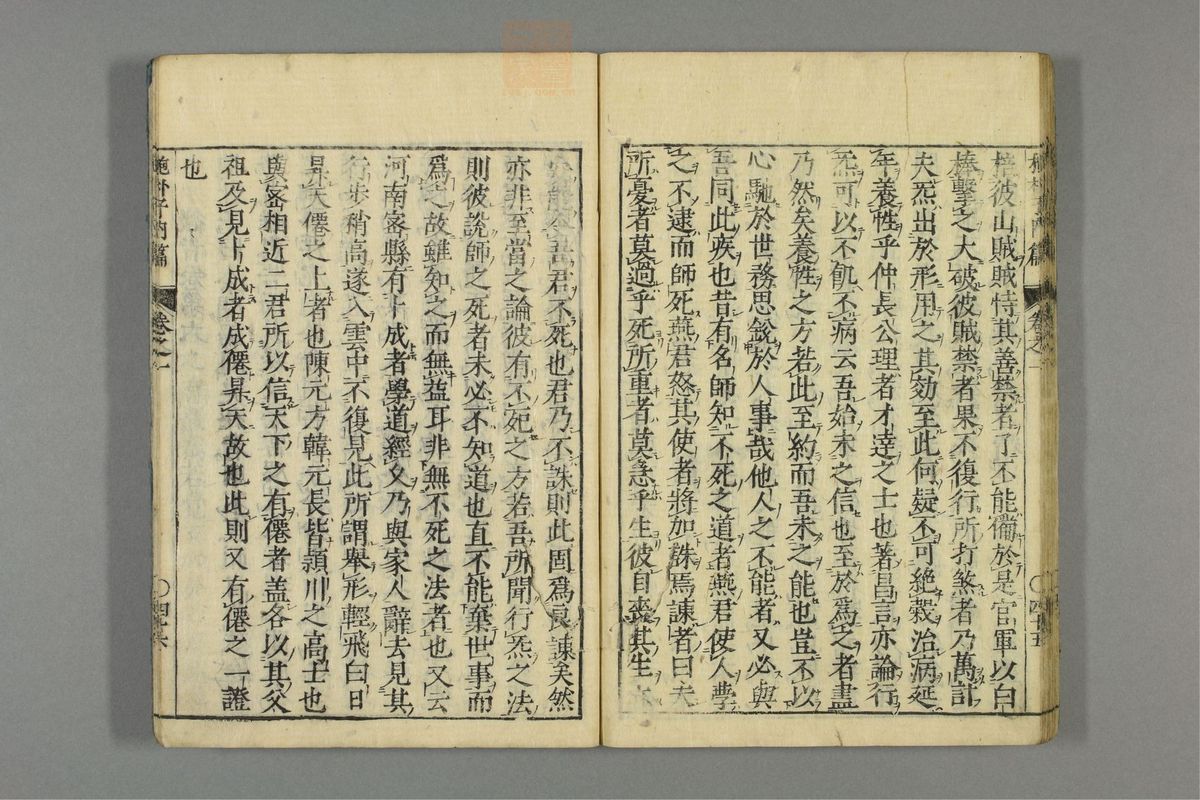 抱朴子内篇 卷之一 〇四十五
棓彼山賊賊恃其善禁者了不能備於是官軍以白
棒擊之大破彼賊禁者果不復行所打煞者乃萬計
夫炁出於形用之其効至此何疑不可絶穀治病延
年養性乎仲長公理者才達之士也著昌言亦論行
炁可以不飢不病云吾始未之信也至於爲之者盡
乃然矣養性之方若此至約而吾未之能也豈不以
心馳於世務思銳於人事哉他人之不能者又必與
吾同此疾也昔有名師知不死之道者燕君使人學
之不逮而師死燕君怒其使者將加誅焉諫者曰夫
所憂者莫過乎死所重者莫急乎生彼自喪其生
安能令吾君不死也君乃不誅則此固爲良諫矣然
亦非至當之論彼有不死之方若吾所聞行炁之法
則彼說師之死者未必不知道也直不能棄世事而
爲之故雖知之而無益耳非無不死之法者也又云
河南密縣有卜成者學道經久乃與家人辭去見其
行步稍高遂入雲中不復見此所謂舉形輕飛白日
昇天僊之上者也陳元方韓元長皆頴川之高士也
與密相近二君所以信天下之有僊者盖各以其父
祖及見卜成者成僊昇天故也此則又有僊之一證
也
抱朴子内篇 卷之一 〇四十六